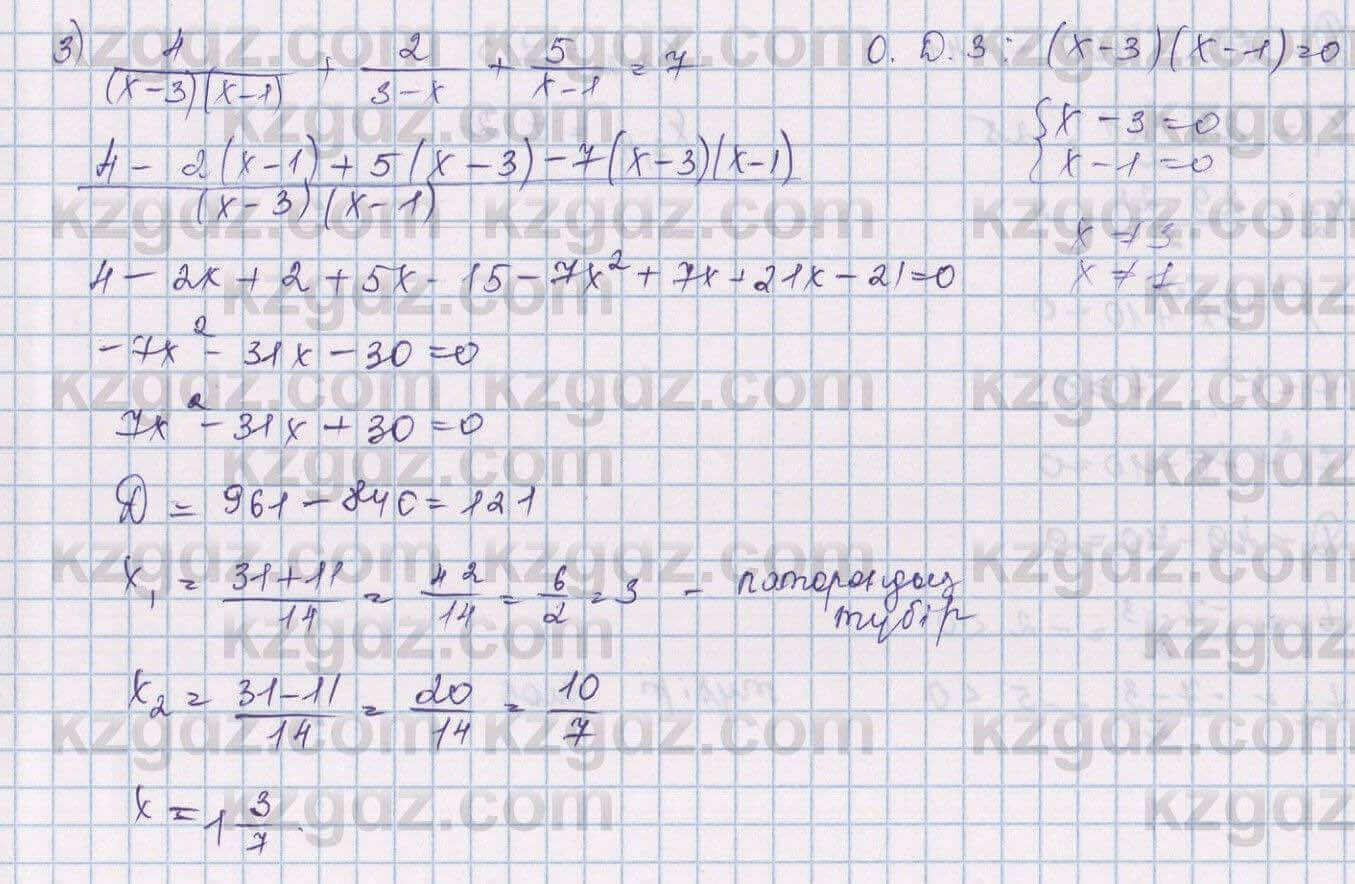 3) 4/((x-3)(x-1)) + 2/(3-x) + 5/(x-1) = 7
О.Д.З: (x-3)(x-1)=0
{x-3=0
x-1=0
x≠3
x≠1
(4 - 2(x-1) + 5(x-3) - 7(x-3)(x-1))/((x-3)(x-1))
4 - 2x + 2 + 5x - 15 - 7x² + 7x + 21x - 21 = 0
-7x² - 31x - 30 = 0
7x² - 31x + 30 = 0
D = 961 - 840 = 121
x₁ = (31+11)/14 = 42/14 = 6/2 = 3 - түбір
x₂ = (31-11)/14 = 20/14 = 10/7
x = 1 3/7.
kzgdz.com